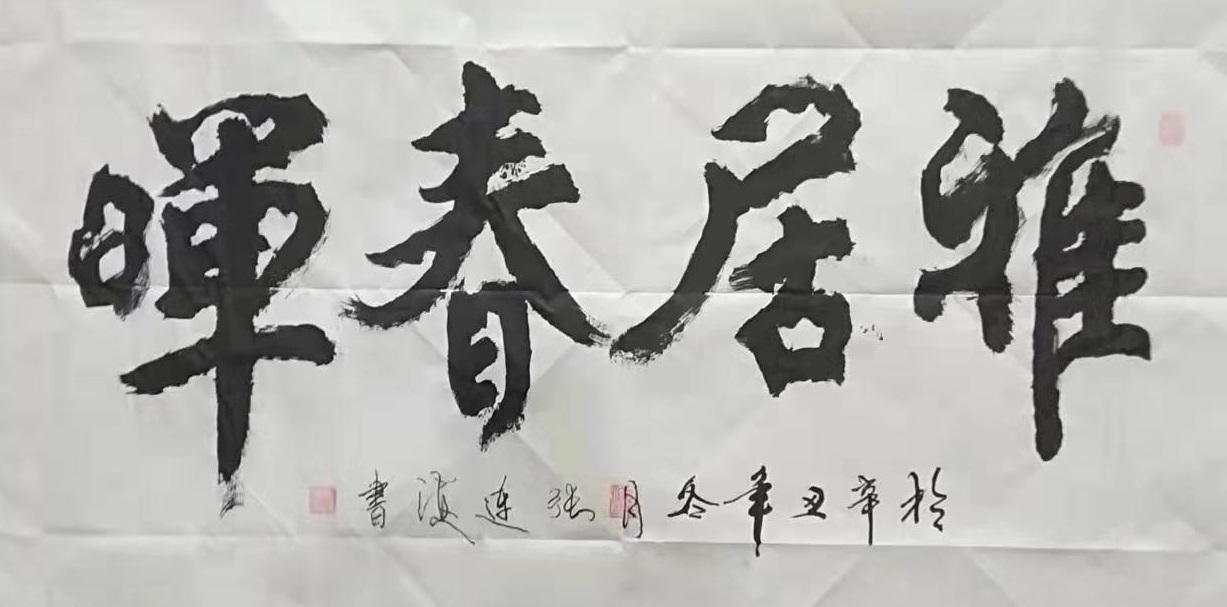 雅居春暉
於辛丑年冬月張连海書